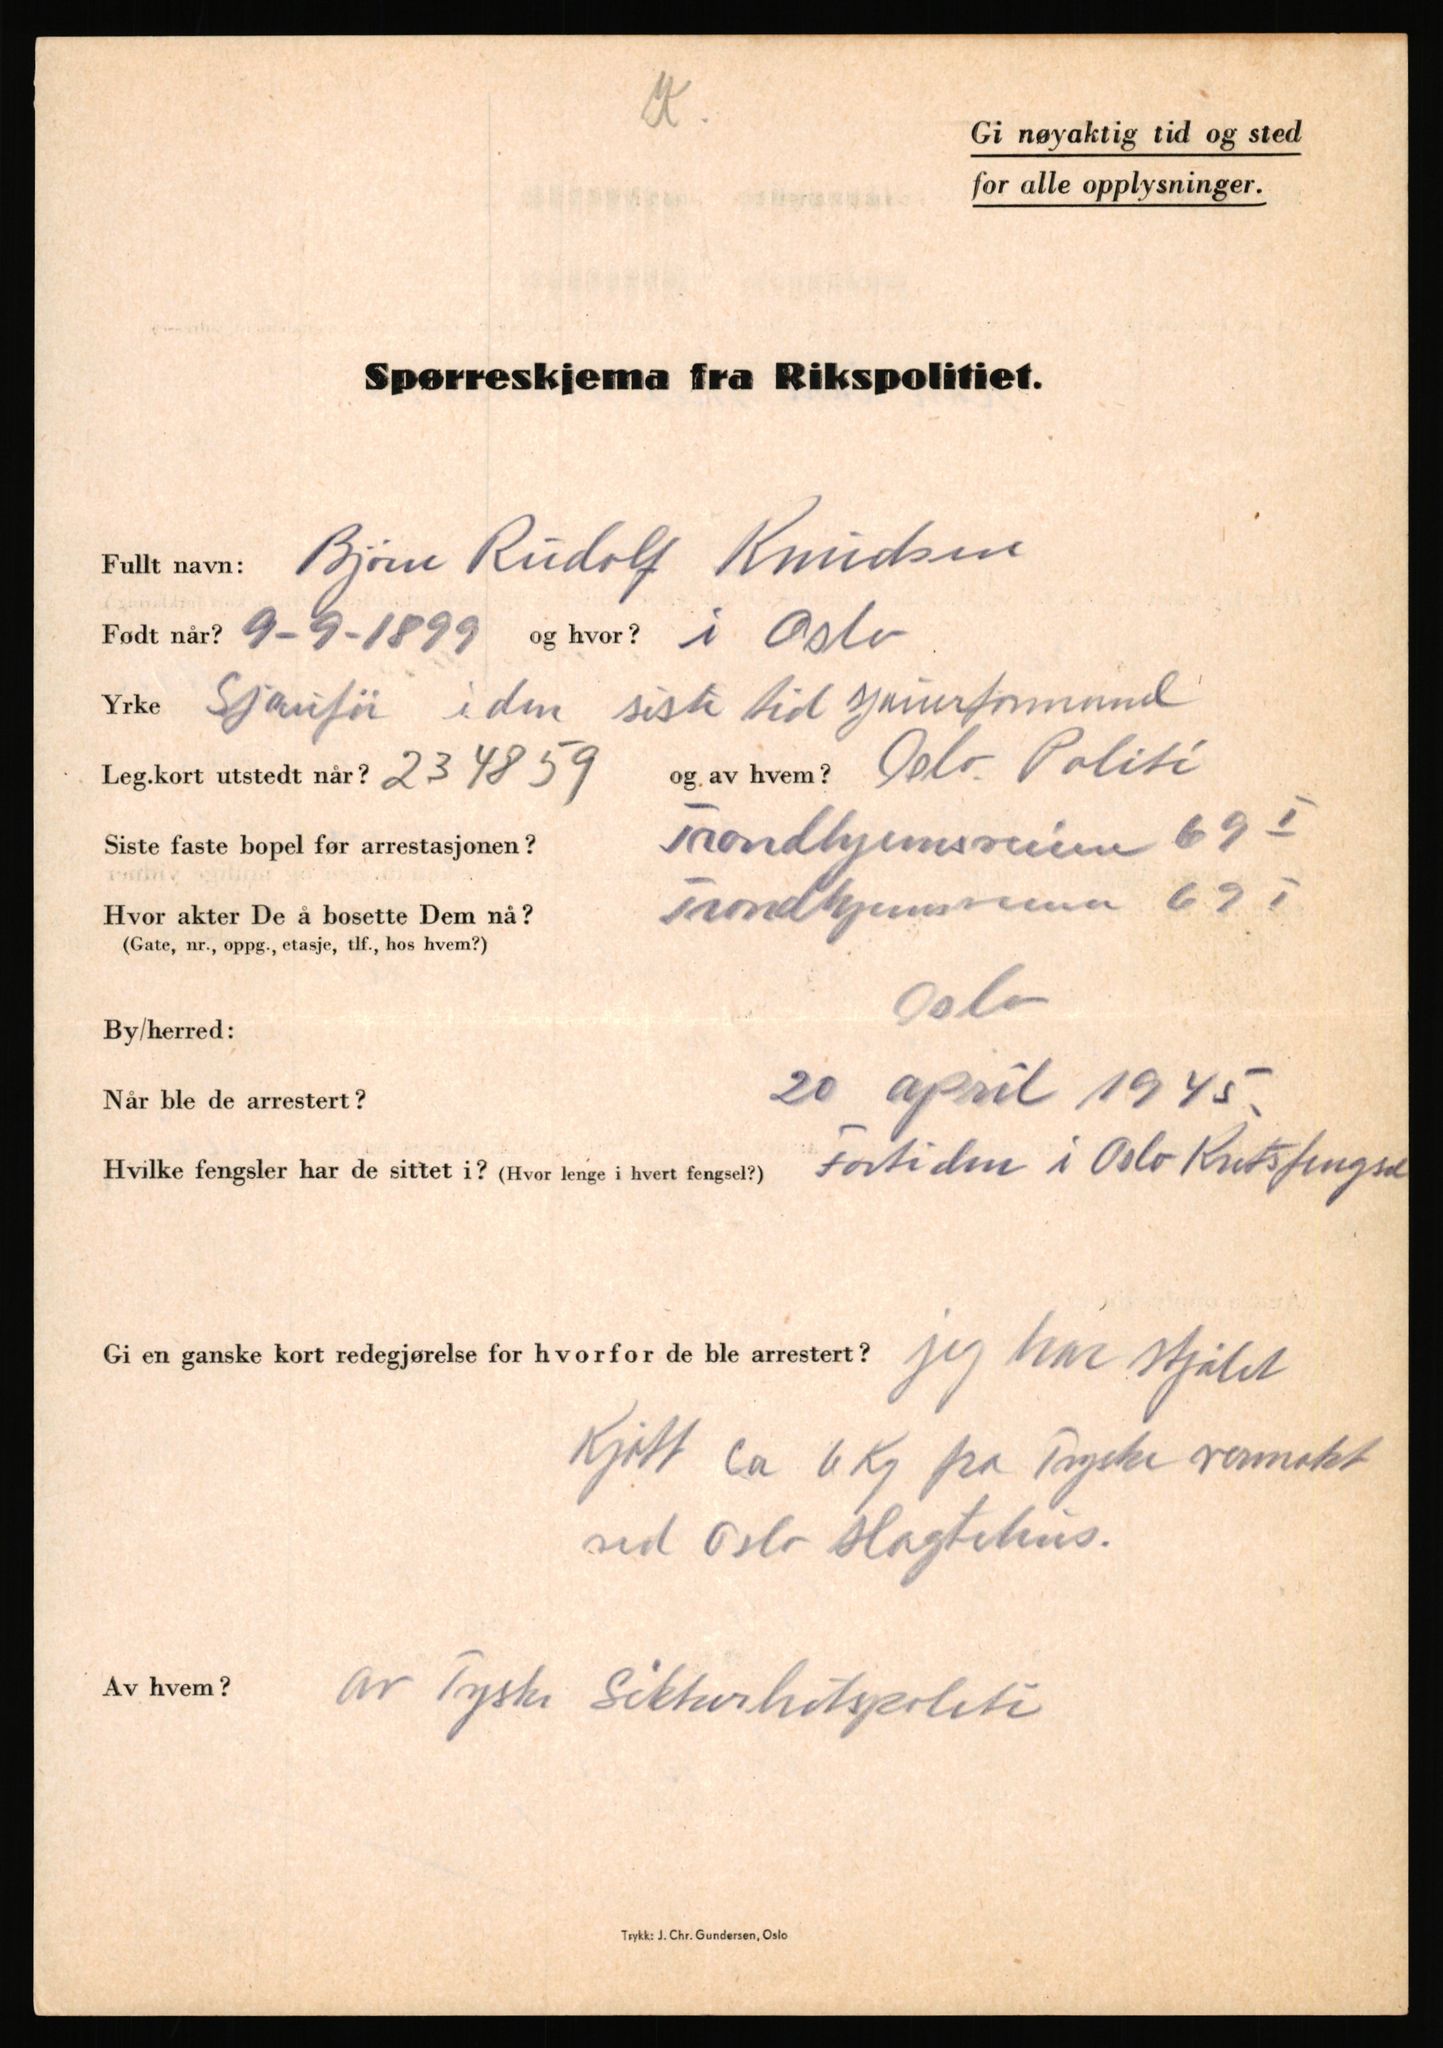 K.
Gi nøyaktig tid og sted
for alle opplysninger.
Spørreskjema fra Rikspolitiet.
Fullt navn: Bjørn Rudolf Knudsen
Født når? 9-9-1899 og hvor? i Oslo
Yrke Sjauför i den siste tid sjauerformand
Leg.kort utstedt når? 234859 og av hvem? Oslo Politi
Siste faste bopel før arrestasjonen? Trondhjemsveien 69 I
Hvor akter De å bosette Dem nå? Trondhjemsveien 69 I
(Gate, nr., oppg., etasje, tlf., hos hvem?)
Oslo
By/herred:
Når ble de arrestert? 20 april 1945.
Hvilke fengsler har de sittet i? (Hvor lenge i hvert fengsel?) Fortiden i Oslo Kretsfengsel
Gi en ganske kort redegjørelse for hvorfor de ble arrestert? jeg har stjålet
Kjøtt ca 6 Kg fra Tyske vermakt
ved Oslo Slagtehus.
Av hvem? av Tyske Sikkerhetspoliti
Trykk: J. Chr. Gundersen, Oslo